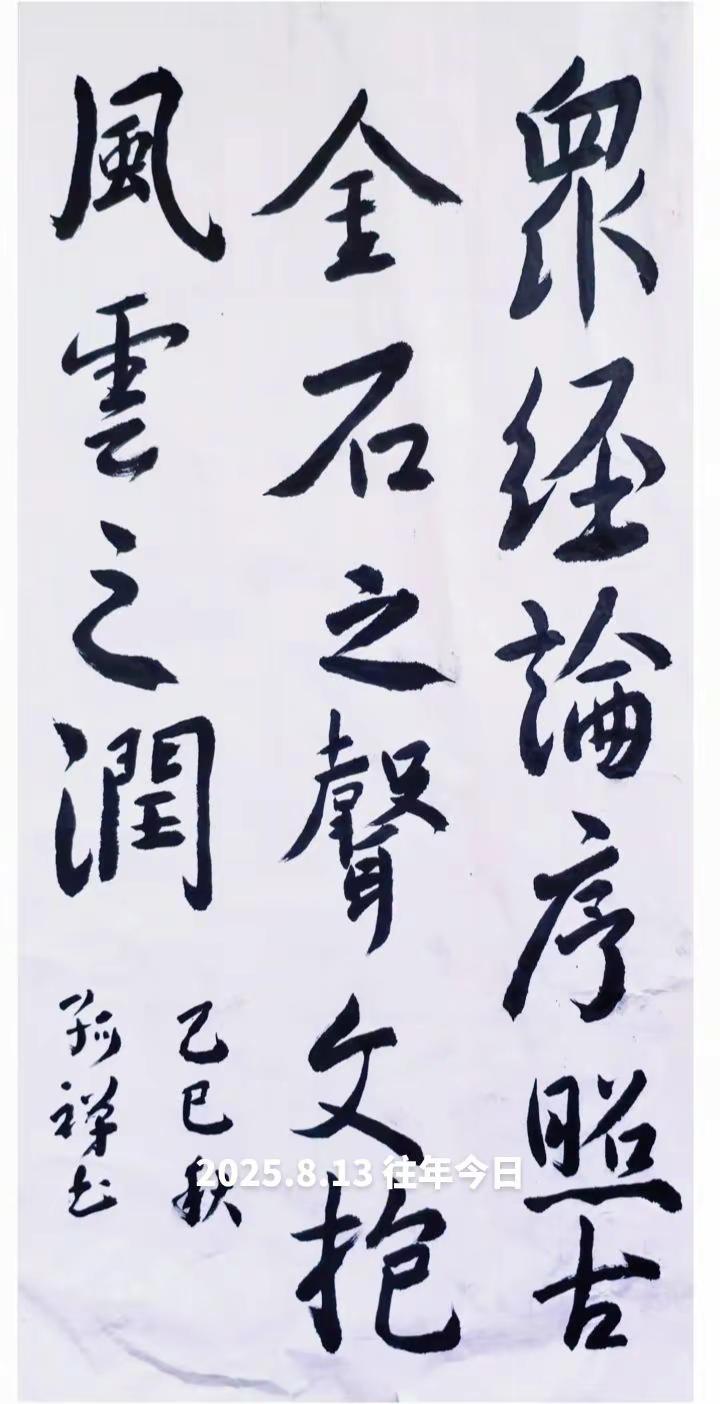 眾經論序照古
金石之聲文抱
風雲之潤
乙巳秋
禅书
2025.8.13 往年今日